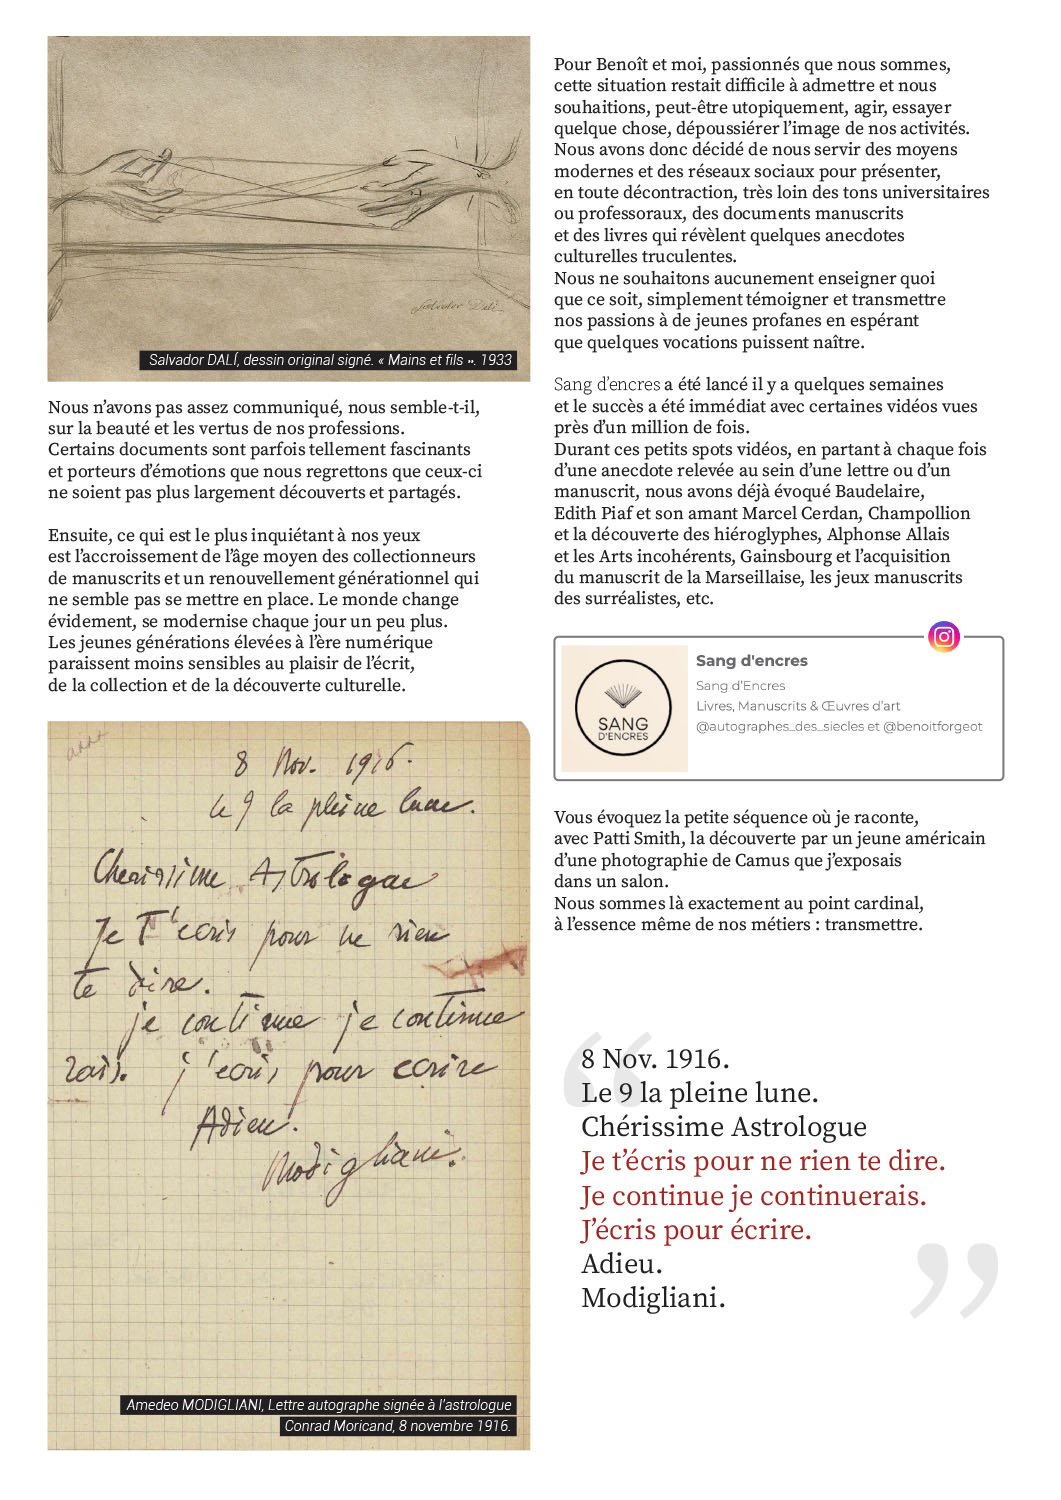 Salvador Dali
Salvador DALÍ, dessin original signé. « Mains et fils ». 1933
Nous n’avons pas assez communiqué, nous semble-t-il,
sur la beauté et les vertus de nos professions.
Certains documents sont parfois tellement fascinants
et porteurs d’émotions que nous regrettons que ceux-ci
ne soient pas plus largement découverts et partagés.
Ensuite, ce qui est le plus inquiétant à nos yeux
est l’accroissement de l’âge moyen des collectionneurs
de manuscrits et un renouvellement générationnel qui
ne semble pas se mettre en place. Le monde change
évidement, se modernise chaque jour un peu plus.
Les jeunes générations élevées à l’ère numérique
paraissent moins sensibles au plaisir de l’écrit,
de la collection et de la découverte culturelle.
8 Nov. 1916.
Le 9 la pleine lune.
Cherissime Astrologue
Je T'ecris pour ne rien
te dire.
je continue je continue
rais. j'ecris pour ecrire
Adieu.
Modigliani.
Amedeo MODIGLIANI, Lettre autographe signée à l’astrologue
Conrad Moricand, 8 novembre 1916.
Pour Benoît et moi, passionnés que nous sommes,
cette situation restait difficile à admettre et nous
souhaitions, peut-être utopiquement, agir, essayer
quelque chose, dépoussiérer l’image de nos activités.
Nous avons donc décidé de nous servir des moyens
modernes et des réseaux sociaux pour présenter,
en toute décontraction, très loin des tons universitaires
ou professoraux, des documents manuscrits
et des livres qui révèlent quelques anecdotes
culturelles truculentes.
Nous ne souhaitons aucunement enseigner quoi
que ce soit, simplement témoigner et transmettre
nos passions à de jeunes profanes en espérant
que quelques vocations puissent naître.
Sang d’encres a été lancé il y a quelques semaines
et le succès a été immédiat avec certaines vidéos vues
près d’un million de fois.
Durant ces petits spots vidéos, en partant à chaque fois
d’une anecdote relevée au sein d’une lettre ou d’un
manuscrit, nous avons déjà évoqué Baudelaire,
Edith Piaf et son amant Marcel Cerdan, Champollion
et la découverte des hiéroglyphes, Alphonse Allais
et les Arts incohérents, Gainsbourg et l’acquisition
du manuscrit de la Marseillaise, les jeux manuscrits
des surréalistes, etc.
SANG
D'ENCRES
Sang d'encres
Sang d’Encres
Livres, Manuscrits & Œuvres d’art
@autographes_des_siecles et @benoitforgeot
Vous évoquez la petite séquence où je raconte,
avec Patti Smith, la découverte par un jeune américain
d’une photographie de Camus que j’exposais
dans un salon.
Nous sommes là exactement au point cardinal,
à l’essence même de nos métiers : transmettre.
“
8 Nov. 1916.
Le 9 la pleine lune.
Chérissime Astrologue
Je t’écris pour ne rien te dire.
Je continue je continuerais.
J’écris pour écrire.
Adieu.
Modigliani.
”